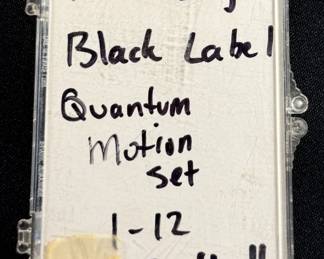 Black Label
Quantum
Motion
set
1-12